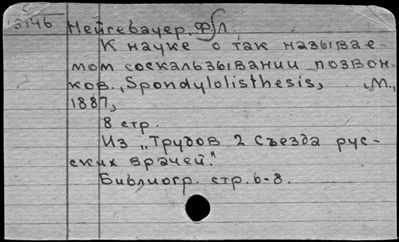 5146 Нейгебауер, Ф Л.
К науке о так называе-
мом соскальзывании позвон-
ков., Spondylolisthesis, М.,
1887,
8 стр.
Из „Трудов 2 съезда рус-
ских врачей."
Библиогр. стр. 6-8.